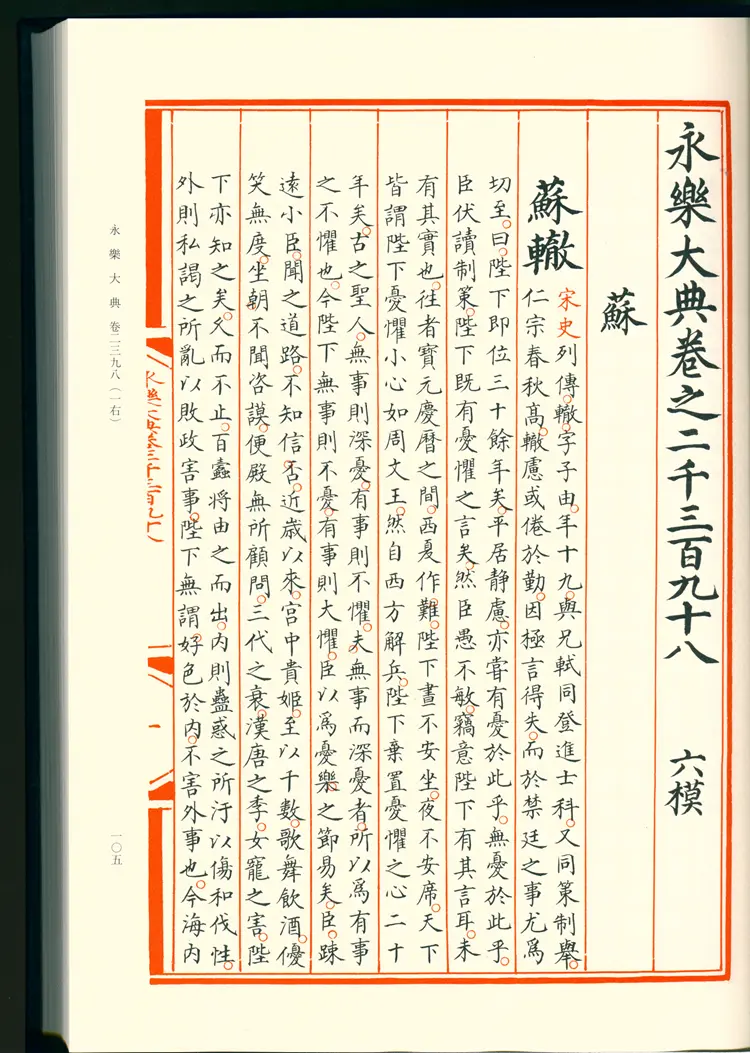 永樂大典卷之二千三百九十八 六模
蘇
蘇轍
宋史列傳。轍。字子由。年十九。與兄軾同登進士科。又同策制舉。
仁宗春秋高。轍慮或倦於勤。因極言得失。而於禁廷之事尤爲
切至。曰。陛下即位三十餘年矣。平居靜慮。亦嘗有憂於此乎。無憂於此乎。
臣伏讀制策。陛下既有憂懼之言矣。然臣愚不敏。竊意陛下有其言耳。未
有其實也。往者寶元慶曆之間。西夏作難。陛下晝不安坐。夜不安席。天下
皆謂陛下憂懼小心如周文王。然自西方解兵。陛下棄置憂懼之心二十
年矣。古之聖人。無事則深憂。有事則不懼。夫無事而深憂者。所以爲有事
之不懼也。今陛下無事則不憂。有事則大懼。臣以爲憂樂之節易矣。臣踈
遠小臣。聞之道路。不知信否。近歲以來。宮中貴姬。至以千數。歌舞飲酒。優
笑無度。坐朝不聞咨謨。便殿無所顧問。三代之衰。漢唐之季。女寵之害。陛
下亦知之矣。久而不止。百蠹將由之而出。內則蠱惑之所汙以傷和伐性。
外則私謁之所亂以敗政害事。陛下無謂好色於內。不害外事也。今海內
永樂大典卷二千三百九十八
一
永樂大典 卷二三九八（一右）
一〇五